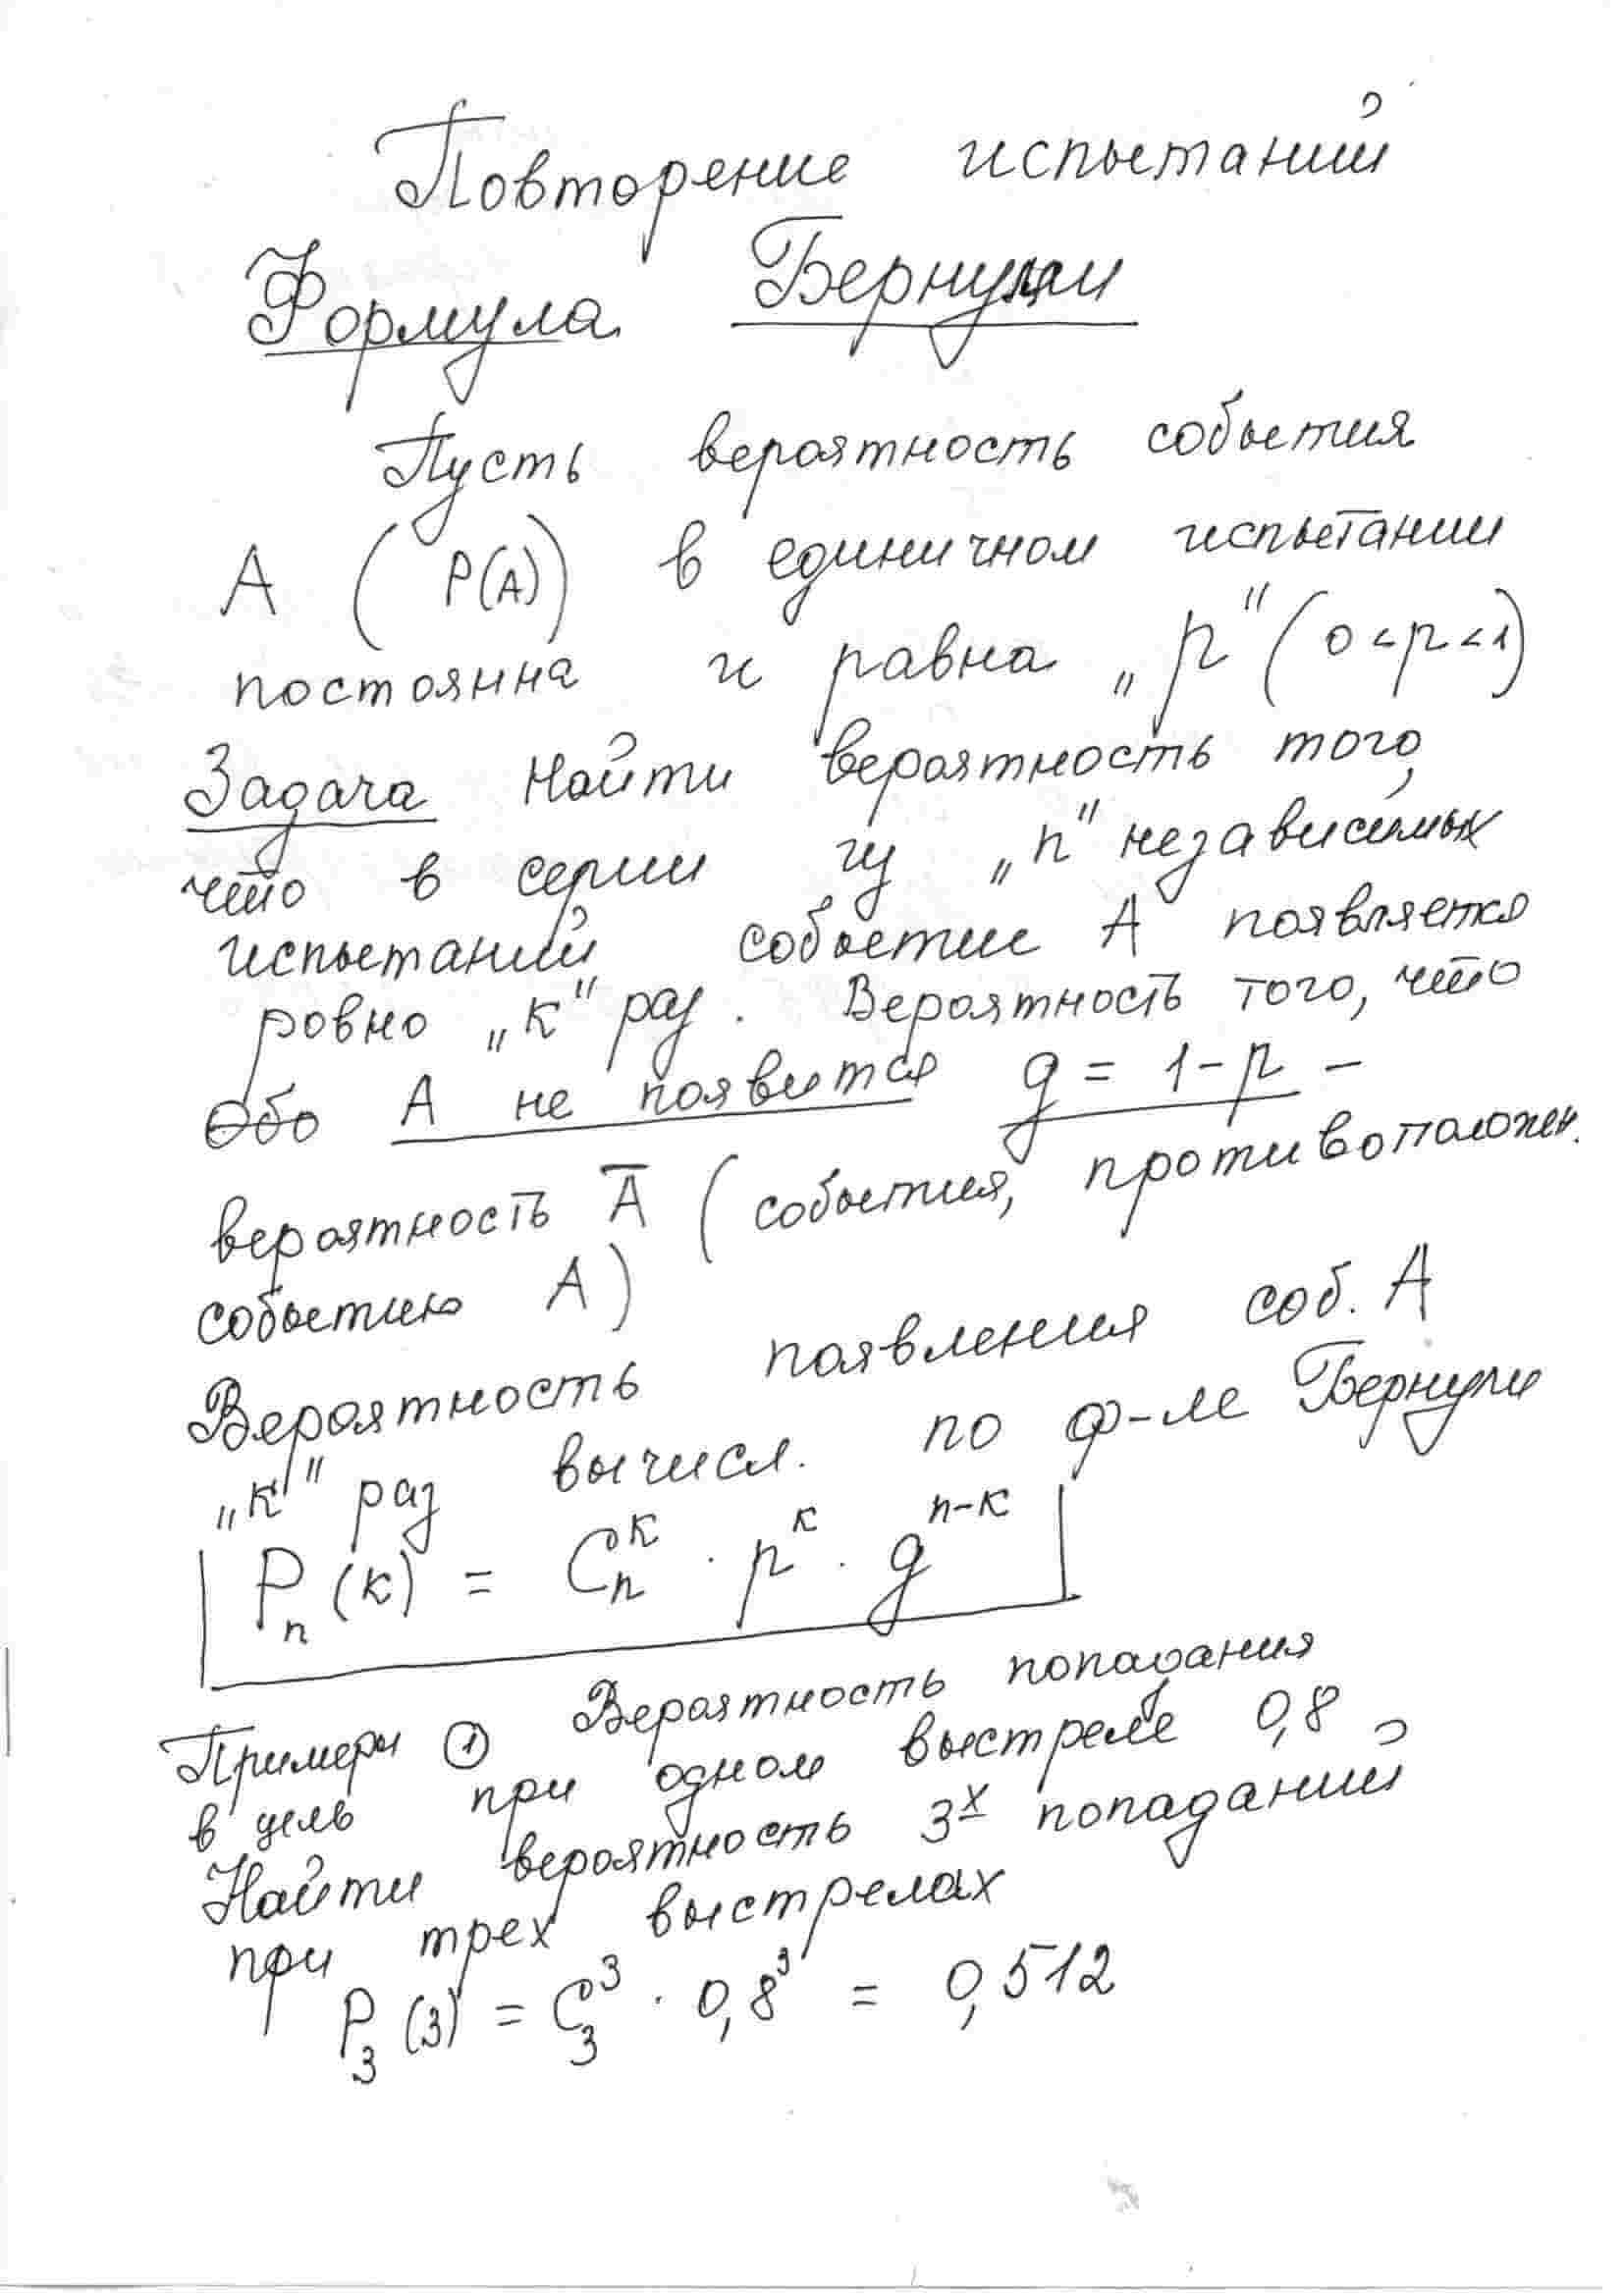 Повторение испытаний
Формула Бернулли
Пусть вероятность события
А ( P(A)) в единичном испытании
постоянна и равна „p" (0<p<1)
Задача Найти вероятность того,
что в серии из „n" независимых
испытаний событие А появляется
ровно „к" раз. Вероятность того, что
Обо А не появится q = 1-p -
вероятность A̅ (события, противоположн.
событию А)
Вероятность появления соб. А
„к" раз вычисл. по ф-ле Бернули
Pₙ(к) = Cₙᴷ · pᴷ · qⁿ⁻ᴷ
Примеры ① Вероятность попадания
в цель при одном выстреле 0,8
Найти вероятность 3х попаданий
при трех выстрелах
P₃(3) = C₃³ · 0,8³ = 0,512